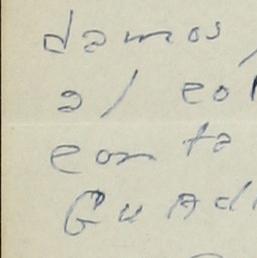 damos,
al col
conta
Guad